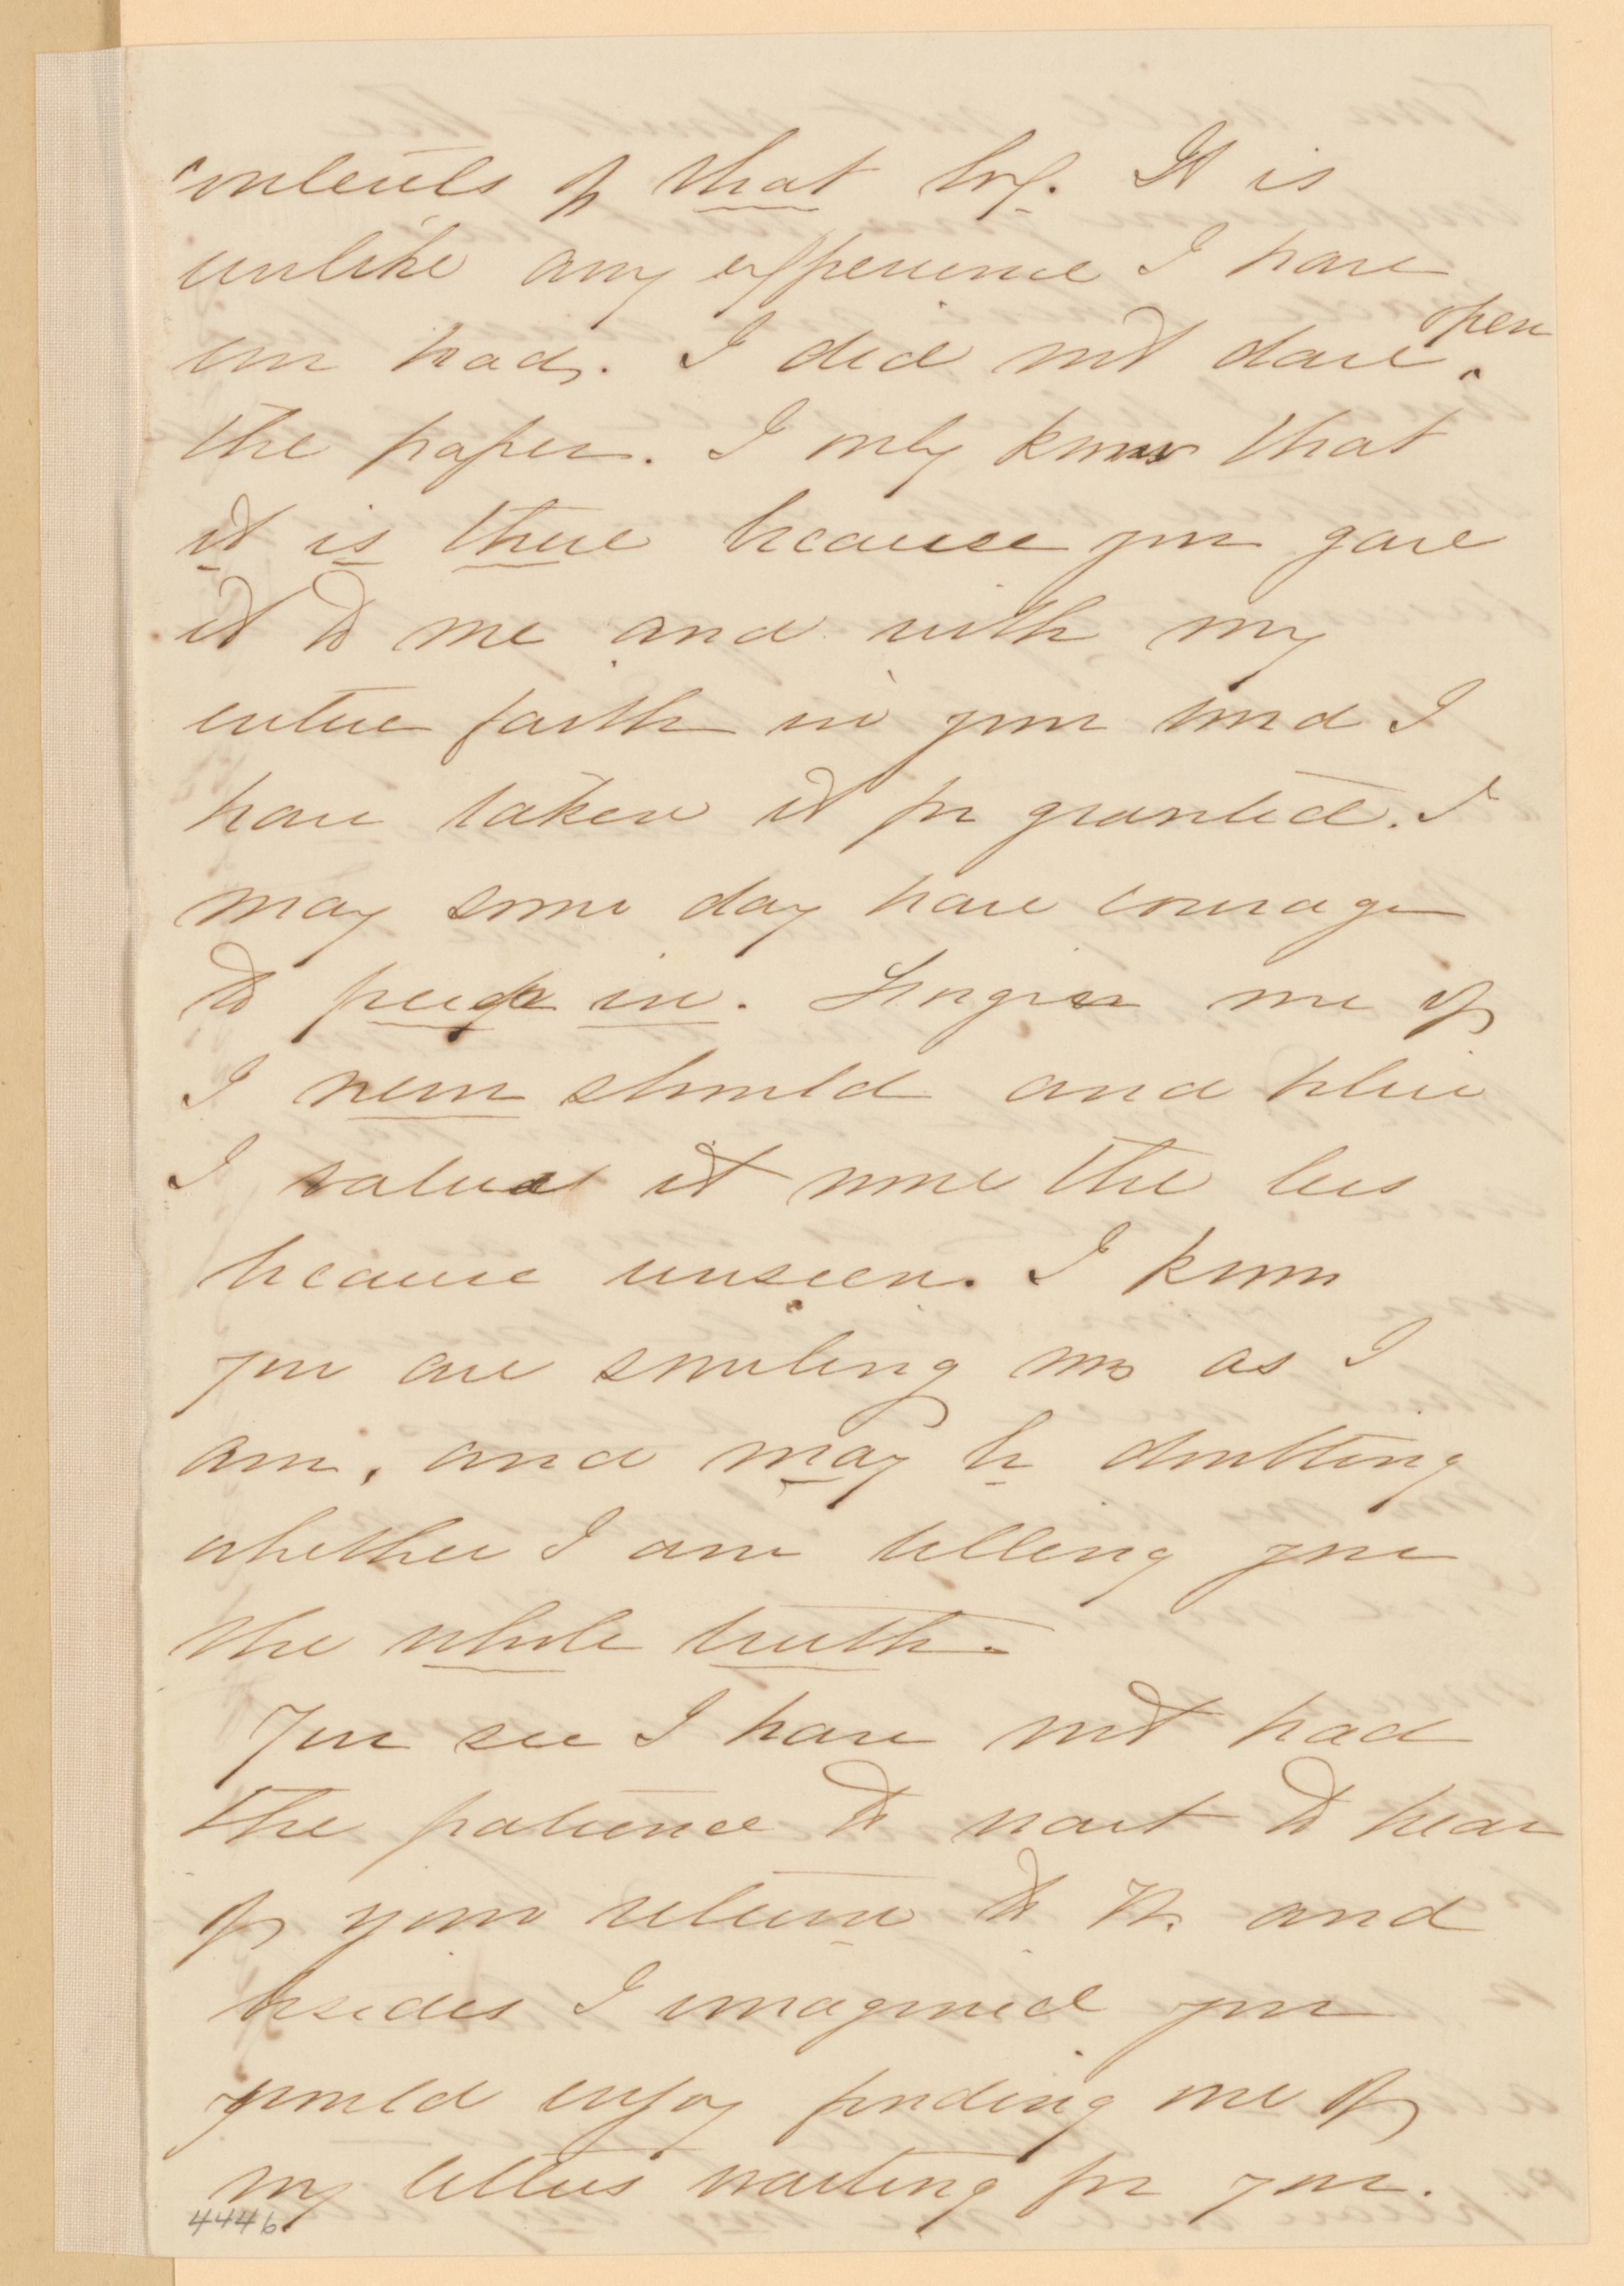 contents of that box. It is
unlike any experience I have
ever had. I did not dare open
the paper. I only know that
it is there because you gave
it to me and with my
entire faith in your word I
have taken it for granted. I
may some day have courage
to peep in. Forgive me if
I never should and believe
I value it none the less
because unseen. I know
you are smiling now as I
am, and may be doubting
whether I am telling you
the whole truth.
You see I have not had
the patience to wait to hear
of your return to N. and
besides I imagined you
would enjoy finding one of
my letters waiting for you.
4446